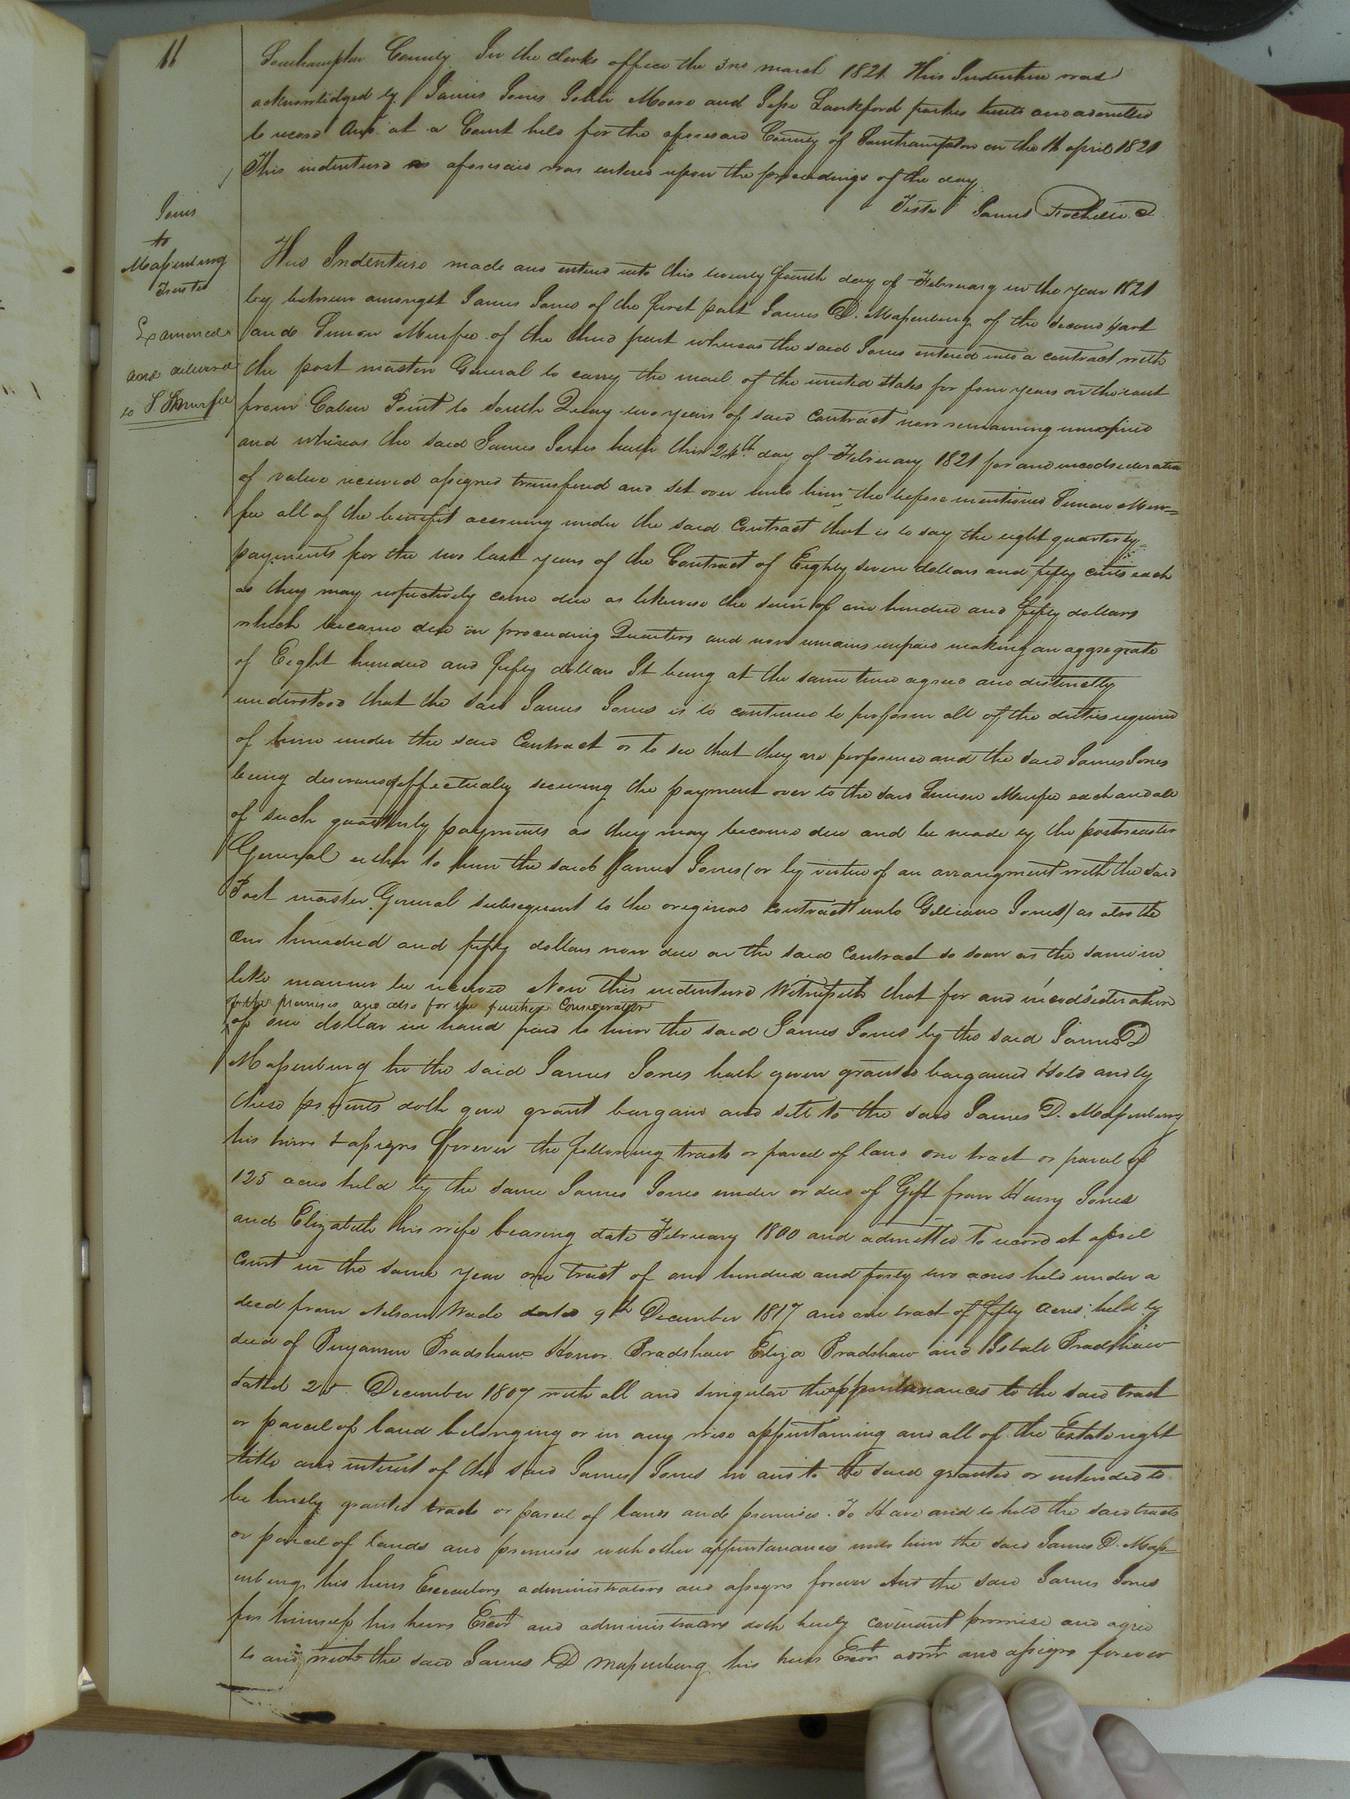 11
Southampton County In the clerks office the 3rd march 1821 This Indenture was
acknowledged by James Jones John Moore and Jesse Lankford parties hereto and admitted
to record And at a Court held for the aforesaid County of Southampton on the 16 april 1821
This indenture as aforesaid was entered upon the proceedings of the day
Teste James Rochelle C
Jones
to
Massenburg
Trustee
Examined
and delivered
to S Murfee
This Indenture made and entered into this twenty fourth day of February in the year 1821
by between amongst James Jones of the first part James D. Massenburg of the second part
and Simon Murfee of the third part whereas the said Jones entered into a contract with
the post master General to carry the mail of the united states for four years on the rout
from Cabin Point to South Quay two years of said contract now remaining unexpired
and whereas the said James Jones hath this 24th day of February 1821 for and in consideration
of value received assigned transfered and set over unto him the before mentioned Simon Mur=
fee all of the benefit accruing under the said Contract that is to say the eight quarterly
payments for the two last years of the Contract of Eighty seven dollars and fifty cents each
as they may respectively come due as likewise the sum of one hundred and fifty dollars
which became due on preceeding Quarters and now remains unpaid making an aggregate
of Eight hundred and fifty dollars It being at the same time agree and distinctly
understood that the said James Jones is to continue to perform all of the duties required
of him under the said Contract or to see that they are performed and the said James Jones
being desirous of effectually securing the payment over to the said Simon Murfee each and all
of such quarterly payments as they may become due and be made by the postmaster
General either to him the said James Jones (or by virtue of an arrangment with the said
Post master General subsequent to the original contract unto William Jones) as also the
one hundred and fifty dollars now due on the said contract so soon as the same in
like manner be received Now this indenture Witnesseth that for and in consideration
of the premises and also for the further Consideration
of one dollar in hand paid to him the said James Jones by the said James D
Massenburg he the said James Jones hath given granted bargained & sold and by
these presents doth give grant bargain and sell to the said James D. Massenburg
his heirs & assigns forever the following tracts or parcel of land one tract or parcel of
125 acres held by the same James Jones under a deed of Gift from Henry Jones
and Elizabeth his wife bearing date February 1800 and admitted to record at april
Court in the same year one tract of one hundred and forty two acres held under a
deed from Nelson Wade dated 9th December 1817 and one tract of fifty acres held by
deed of Benjamin Bradshaw Honor Bradshaw Eliza Bradshaw and Isbell Bradshaw
dated 25 December 1807 with all and singular the appurtanances to the said tract
or parcel of land belonging or in any wise appertaining and all of the Estate right
title and interest of the said James Jones in and to the said granted or intended to
be hereby granted tracts or parcel of lands and premises. To Have and to hold the said tracts
or parcel of lands and premises with other appurtanances unto him the said James D. Mass
enburg his heirs Executors administrators and assigns forever And the said James Jones
for himself his heirs Exors and administrators doth hereby covenant promise and agree
to and with the said James D Massenburg his heirs Exors admrs and assigns forever